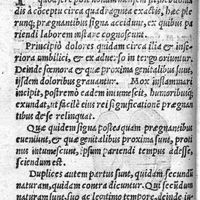 di à cõceptu circa quadragĩta exactis, hac ple-
runq; prægnantibus signa accidunt, ex quibus pa
riendi laborem instare cognoscunt.
Principiò dolores quidam circa ilia & infe-
riora umbilici, & ex aduerso in tergo oriuntur.
Deinde fœmora & quæ proxima genitalibus sunt,
ijsdem doloribus grauantur. Mox in sumum
incipit, postremò eadem intumescit, humoribusq́;
exundat, ut facile eius rei significatione prægnan
tibus de se relinquat.
Quæ quidem signa postea quam prægnantibus
eueniunt, & quæ genitalibus proxima sunt, proti
nus intumescunt, ipsum pariendi tempus adesse,
sciendum est.
Duplices autem partus sunt, quidam secundũ
naturam, quidam contra dicuntur. Qui secũdum
naturam sunt, suo ac legitimo tempore, deinde in